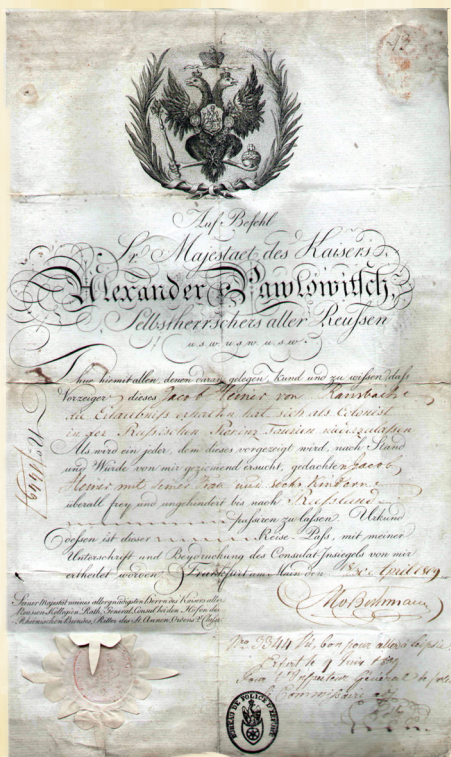 Auf Befehl
Sr. Majestaet des Kaisers
Alexander Pawlowitsch,
Selbstherrschers aller Reußen
u.s.w. u.s.w. u.s.w.
Thue hiemit allen, denen daran gelegen, kund und zu wissen, daß
Vorzeiger dieses Jacob Heiner von
die Erlaubniß erhalten hat sich als Colonist
in der Rußischen Provinz Taurien niederzulassen
Als wird ein jeder, dem dieses vorgezeigt wird, nach Stand
und Würde von mir geziemend ersucht, gedachten Jacob
Heiner mit seiner Frau und sechs Kindern
überall frey und ungehindert bis nach Rußland
passiren zu lassen. Urkund
dessen ist dieser Reise-Paß, mit meiner
Unterschrift und Beydruckung des Consulat-Insiegels von mir
ertheilet worden. Frankfurt am Main den April 1809
Seiner Majestät meines allergnädigsten Herrn des Kaisers aller
Reussen Kollegien Rath, General Consul bei den Höfen des
Rheinischen Bundes, Ritter des St. Annen Ordens
No. 3344 Vu, bon pour aller à Leipsic
Erfort le 9 Juin 1809
BUREAU DE POLICE D'ERFORT